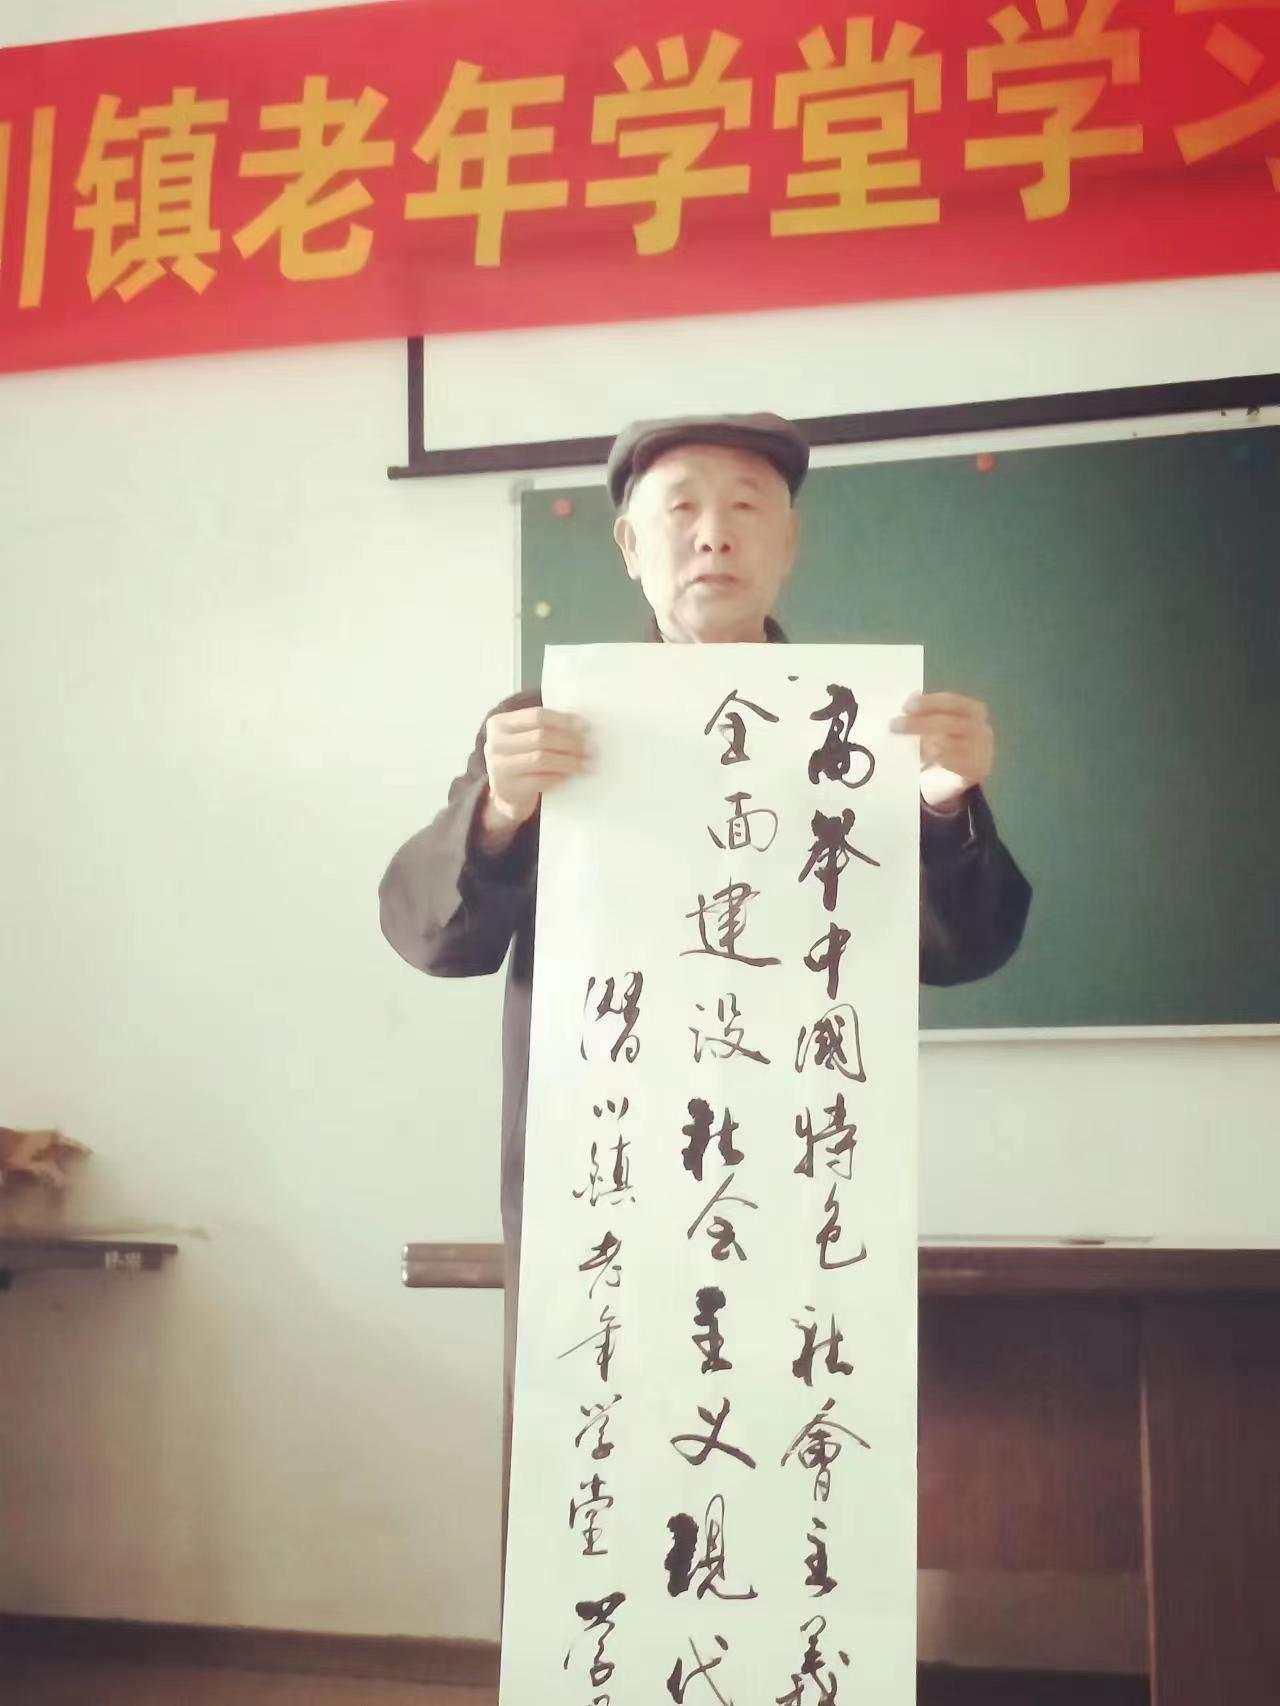 川镇老年学堂学习
高举中國特色社會主義
全面建设社会主义現代
潛川鎮老年学堂学